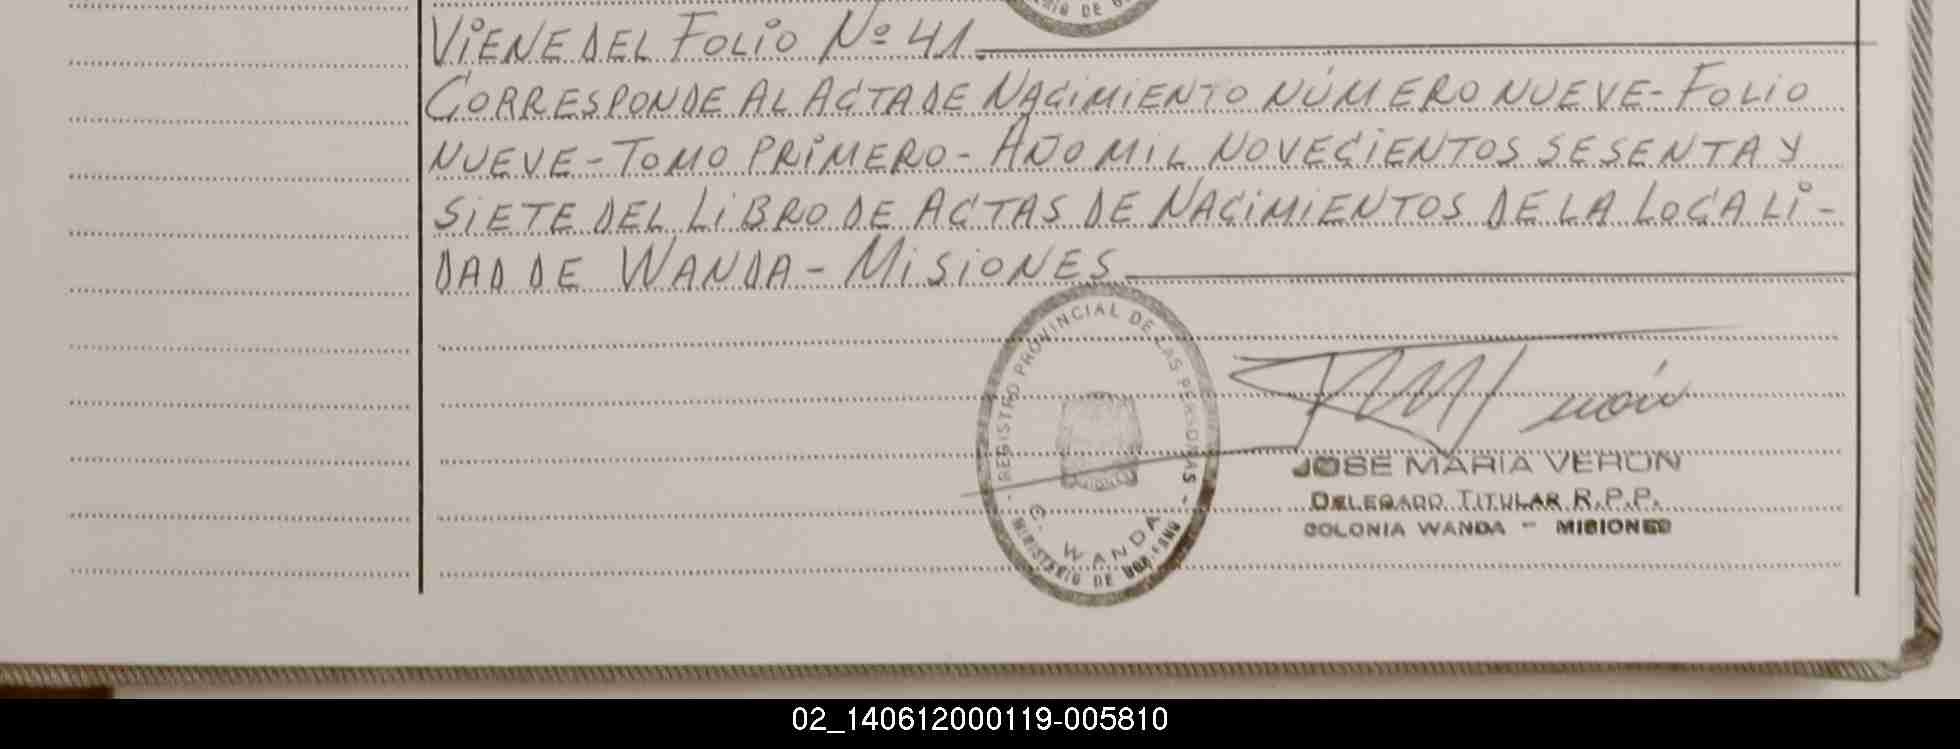 RIO DE
VIENE DEL FOLIO Nº 41.
CORRESPONDE AL ACTA DE NACIMIENTO NÚMERO NUEVE - FOLIO
NUEVE - TOMO PRIMERO - AÑO MIL NOVECIENTOS SESENTA Y
SIETE DEL LIBRO DE ACTAS DE NACIMIENTOS DE LA LOCALI-
DAD DE WANDA - MISIONES
- REGISTRO PROVINCIAL DE LAS PERSONAS -
C. WANDA
MINISTERIO DE GOBIERNO
JOSE MARIA VERON
DELEGADO TITULAR R.P.P.
COLONIA WANDA - MISIONES
02_140612000119-005810